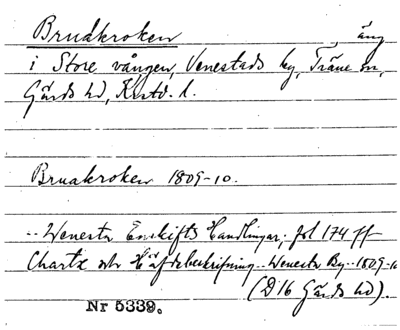 Brudkroken, äng
i Store vången, Venestads by, Träne sn,
Gärds hd, Krstd. l.
Brudkroken 1809-10.
-- Wenesta Enskifts Handlingar, fol 174 ff
Charta och Häfdebeskrifning -- Wenesta By -- 1809-10
(D16 Gärds hd).
Nr 5339.